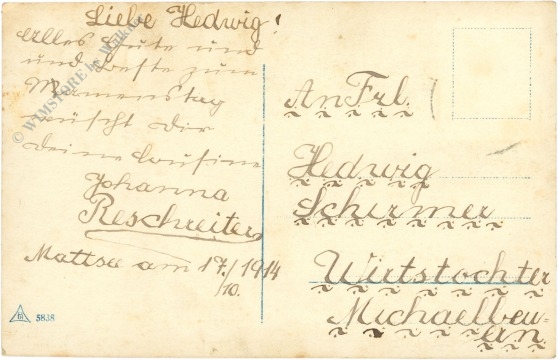 Liebe Hedwig!
Alles Gute und
und beste zum
Namenstag
wüscht dir
deine Cousine
Johanna
Reschreiter
Mattsee am 17./1914
/10.
An Frl.
Hedwig
Schirmer
Wirtstochter
Michaelbeu-
ern
© WIMSTORE by Walka
5838